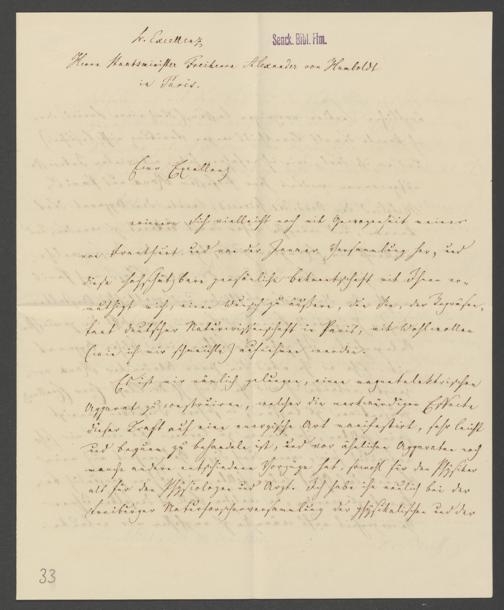 Sr. Excellenz
Senck. Bibl. Ffm.
Herrn Staatsminister Freiherrn Alexander von Humboldt
in Paris.
Euer Excellenz
erinnern Sich vielleicht noch mit Gewogenheit meiner
von Frankfurt und von der Jenaer Versammlung her, und
diese hochschätzbare persönliche Bekanntschaft mit Ihnen er-
muthigt mich, einen Wunsch zu äußern, den Sie, der Repräsen-
tant deutscher Naturwissenschaft in Paris, mit Wohlwollen
(wie ich mir schmeichle) aufnehmen werden.
Es ist mir nämlich gelungen, einen magnetelektrischen
Apparat zu construiren, welcher die merkwürdigen Effecte
dieser Kraft auf eine energische Art manifestirt, sehr leicht
und bequem zu behandeln ist, und vor ähnlichen Apparaten noch
manche andere entschiedene Vorzüge hat, sowohl für den Physiker
als für den Physiologen und Arzt. Ich habe ihn neulich bei der
Freiburger Naturforscherversammlung der physikalischen und der
33